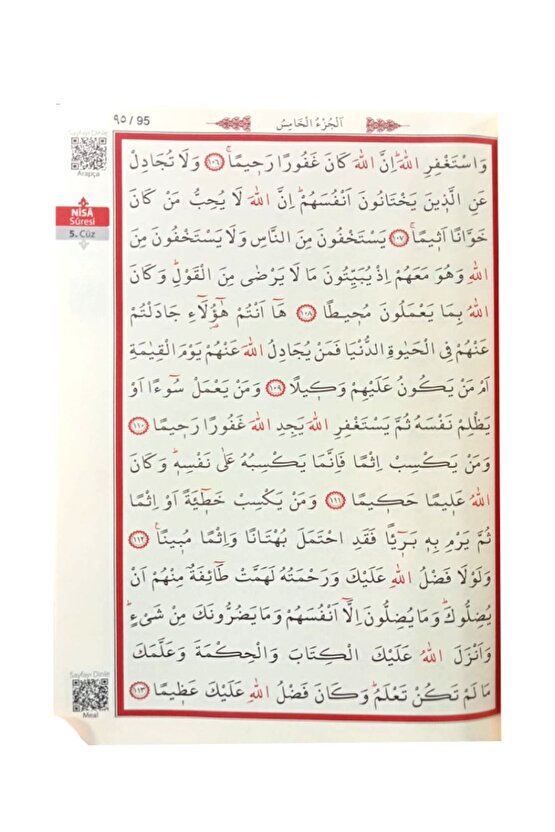 ٩٥ / 95
اَلْجُزْءُ الْخَامِسُ
Sayfayı Dinle
Arapça
NİSÂ
Sûresi
5. Cüz
وَاسْتَغْفِرِ اللّٰهَۜ اِنَّ اللّٰهَ كَانَ غَفُورًا رَح۪يمًاۚ ﴿١٠٦﴾ وَلَا تُجَادِلْ
عَنِ الَّذ۪ينَ يَخْتَانُونَ اَنْفُسَهُمْۜ اِنَّ اللّٰهَ لَا يُحِبُّ مَنْ كَانَ
خَوَّانًا اَث۪يمًاۚ ﴿١٠٧﴾ يَسْتَخْفُونَ مِنَ النَّاسِ وَلَا يَسْتَخْفُونَ مِنَ
اللّٰهِ وَهُوَ مَعَهُمْ اِذْ يُبَيِّتُونَ مَا لَا يَرْضٰى مِنَ الْقَوْلِۜ وَكَانَ
اللّٰهُ بِمَا يَعْمَلُونَ مُح۪يطًا ﴿١٠٨﴾ هَٓا اَنْتُمْ هٰٓؤُ۬لَٓاءِ جَادَلْتُمْ
عَنْهُمْ فِي الْحَيٰوةِ الدُّنْيَا فَمَنْ يُجَادِلُ اللّٰهَ عَنْهُمْ يَوْمَ الْقِيٰمَةِ
اَمْ مَنْ يَكُونُ عَلَيْهِمْ وَك۪يلًا ﴿١٠٩﴾ وَمَنْ يَعْمَلْ سُٓوءًا اَوْ
يَظْلِمْ نَفْسَهُ ثُمَّ يَسْتَغْفِرِ اللّٰهَ يَجِدِ اللّٰهَ غَفُورًا رَح۪يمًا ﴿١١٠﴾
وَمَنْ يَكْسِبْ اِثْمًا فَاِنَّمَا يَكْسِبُهُ عَلٰى نَفْسِه۪ۜ وَكَانَ
اللّٰهُ عَل۪يمًا حَك۪يمًا ﴿١١١﴾ وَمَنْ يَكْسِبْ خَط۪ٓيـَٔةً اَوْ اِثْمًا
ثُمَّ يَرْمِ بِه۪ بَر۪ٓيـًٔا فَقَدِ احْتَمَلَ بُهْتَانًا وَاِثْمًا مُب۪ينًا۟ ﴿١١٢﴾
وَلَوْلَا فَضْلُ اللّٰهِ عَلَيْكَ وَرَحْمَتُهُ لَهَمَّتْ طَٓائِفَةٌ مِنْهُمْ اَنْ
يُضِلُّوكَۜ وَمَا يُضِلُّونَ اِلَّٓا اَنْفُسَهُمْ وَمَا يَضُرُّونَكَ مِنْ شَيْءٍۜ
وَاَنْزَلَ اللّٰهُ عَلَيْكَ الْكِتَابَ وَالْحِكْمَةَ وَعَلَّمَكَ
مَا لَمْ تَكُنْ تَعْلَمُۜ وَكَانَ فَضْلُ اللّٰهِ عَلَيْكَ عَظ۪يمًا ﴿١١٣﴾
Sayfayı Dinle
Meal